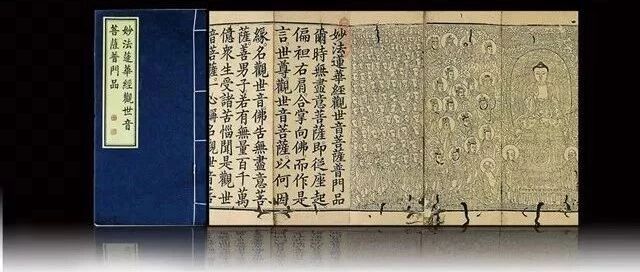 妙法蓮華經觀世音
菩薩普門品
妙法蓮華經觀世音菩薩普門品
爾時無盡意菩薩即從座起
偏袒右肩合掌向佛而作是
言世尊觀世音菩薩以何因
緣名觀世音佛告無盡意菩
薩善男子若有無量百千萬
億衆生受諸苦惱聞是觀世
音菩薩一心稱名觀世